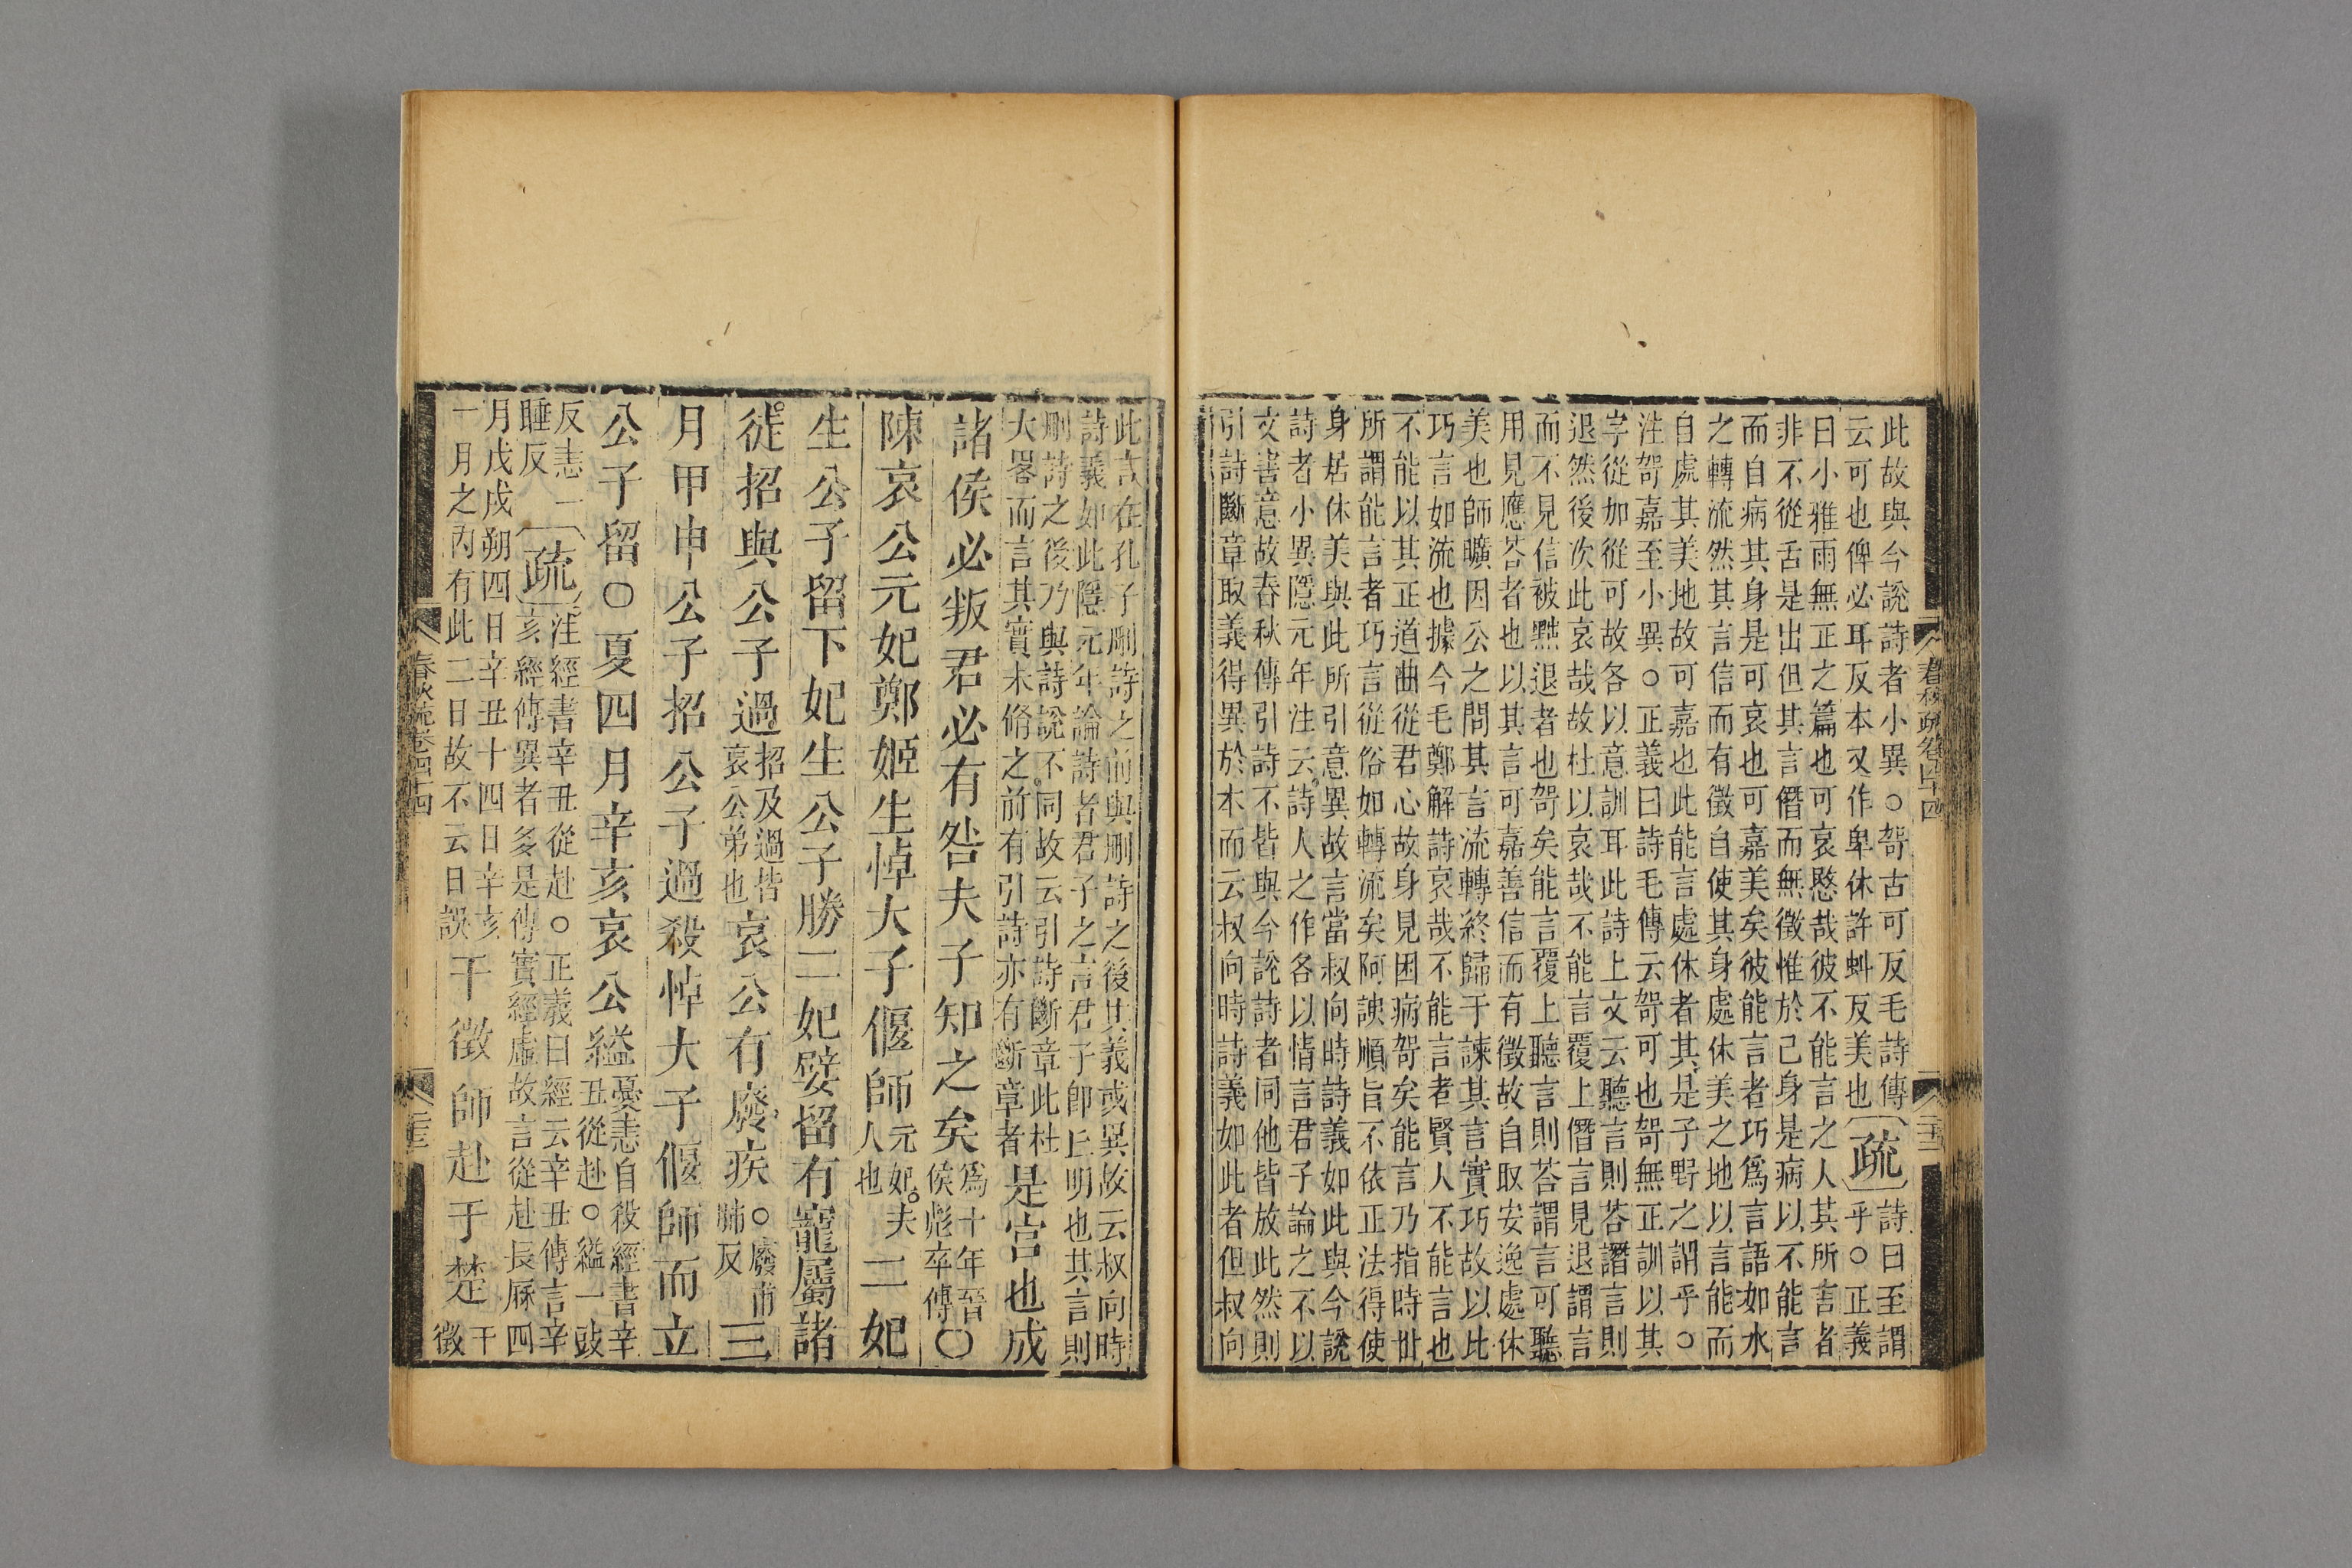 此故與今說詩者小異○哿古可反毛詩傳
云可也俾必耳反本又作卑休許虯反美也
疏
詩曰至謂
乎○正義
曰小雅雨無正之篇也可哀愍哉彼不能言之人其所言者
非不從舌是出但其言僭而無徵惟於己身是病以不能言
而自病其身是可哀也可嘉美矣彼能言者巧爲言語如水
之轉流然其言信而有徵自使其身處休美之地以言能而
自處其美地故可嘉也此能言處休者其是子野之謂乎○
注哿嘉至小異○正義曰詩毛傳云哿可也哿無正訓以其
字從加從可故各以意訓耳此詩上文云聽言則荅譖言則
退然後次此哀哉故杜以哀哉不能言覆上僭言見退謂言
而不見信被黜退者也哿矣能言覆上聽言則荅謂言可聽
用見應荅者也以其言可嘉善信而有徵故自取安逸處休
美也師曠因公之問其言流轉終歸于諫其言實巧故以比
巧言如流也據今毛鄭解詩哀哉不能言者賢人不能言也
不能以其正道曲從君心故身見困病哿矣能言乃指時世
所謂能言者巧言從俗如轉流矣阿諛順旨不依正法得使
身居休美與此所引意異故言當叔向時詩義如此與今說
詩者小異隱元年注云詩人之作各以情言君子論之不以
文害意故春秋傳引詩不皆與今說詩者同他皆放此然則
引詩斷章取義得異於本而云叔向時詩義如此者但叔向
春秋疏卷四十四
二十三
此言在孔子刪詩之前與刪詩之後其義或異故云叔向時
詩義如此隱元年論詩者君子之言君子卽丘明也其言則
刪詩之後乃與詩說不同故云引詩斷章此杜
大畧而言其實未脩之前有引詩亦有斷章者
是宮也成
諸侯必叛君必有咎夫子知之矣
爲十年晉
侯彪卒傳
○
陳哀公元妃鄭姬生悼大子偃師
元妃夫
人也
二妃
生公子留下妃生公子勝二妃嬖留有寵屬諸
徒招與公子過
招及過皆
哀公弟也
哀公有廢疾
○廢甫
肺反
三
月甲申公子招公子過殺悼大子偃師而立
公子留○夏四月辛亥哀公縊
憂恚自殺經書辛
丑從赴○縊一豉
反恚一
睡反
疏
注經書辛丑從赴○正義曰經云辛丑傳言辛
亥經傳異者多是傳實經虛故言從赴長厤四
月戊戌朔四日辛丑十四日辛亥
一月之內有此二日故不云日誤
干徵師赴于楚
干
徵
春秋疏卷四十四
二十三